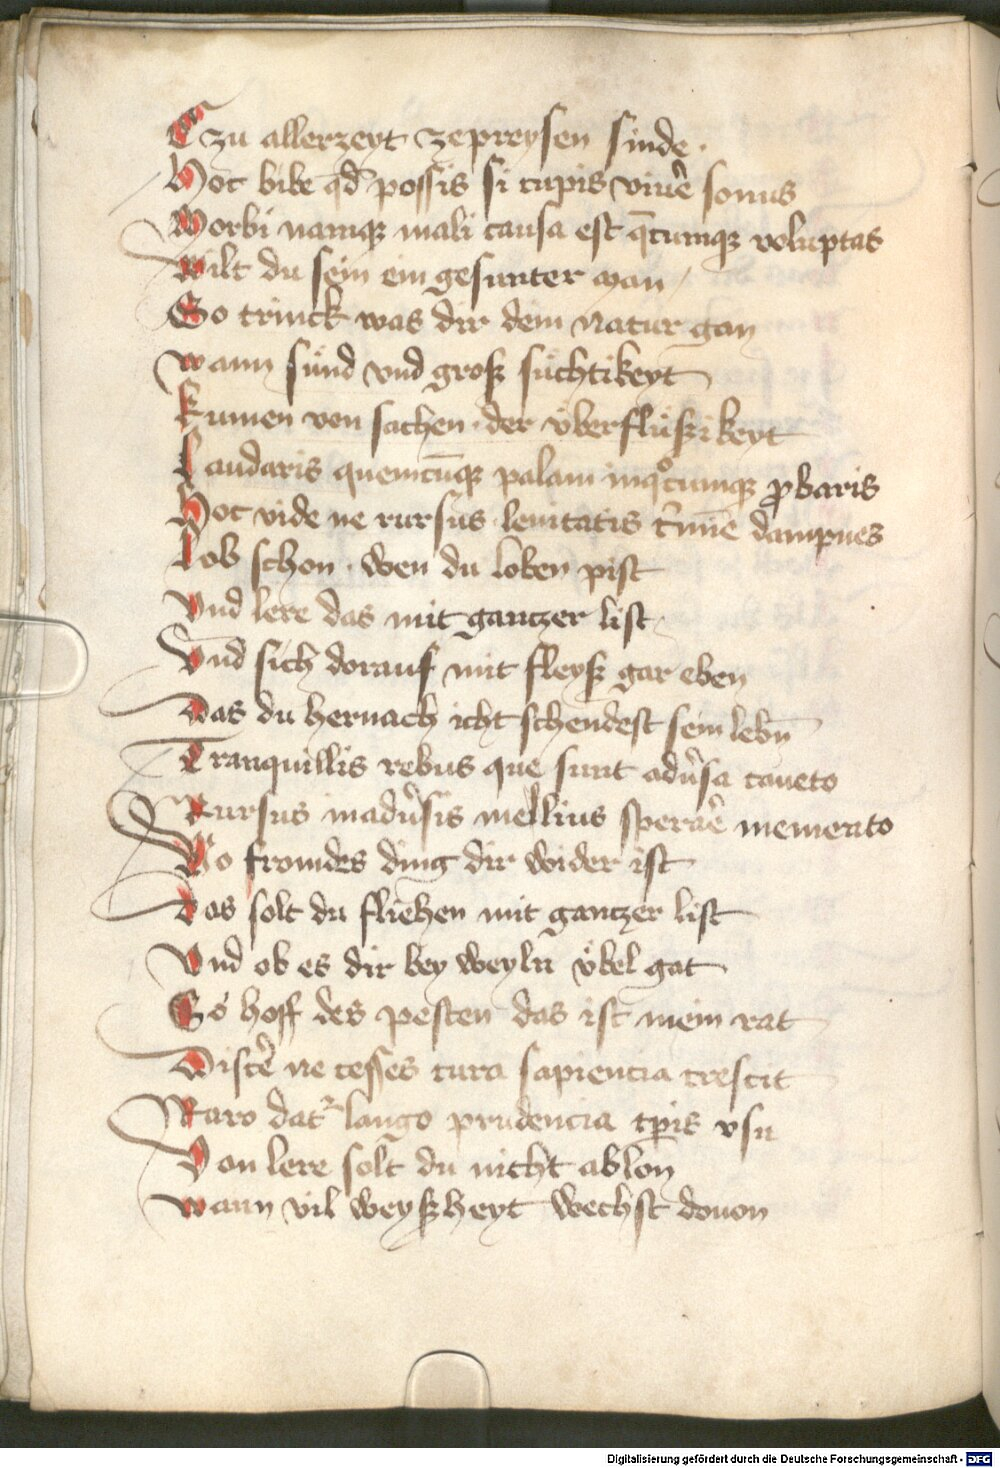 Czu allerzeyt zepreysen sinde .
Hoc bibe qd̄ possis si cupis viue᷑ sonus
Morbi namqꝫ mali causa est q̄cumqꝫ voluptas
Wilt du sein ein gesunter man
So trinck was dir dein natur gan
wann sund vnd groß süchtikeyt
Kumen von sachen . der vͤberflüßikeyt
Laudaris quemcūqꝫ palam inqͦcumqꝫ ꝓbaris
Hoc vide ne rursus leuitatis t᷑mīe dampnes
Lob schon . wen du loben pist
Vnd lere das mit gantzer list
Vnd sich dorauf mit fleyß gar eben
Das du hernach icht schendest sein lebn̄
Tranquillis rebus que sunt adu᷑sa caueto
Rursus inadu᷑sis mellius spera᷑e memento
Wo fromdes ding dir wider ist
Das solt du fliehen mit gantzer list
Vnd ob es dir bey weyln vͤbel gat
So hoff des pesten das ist mein rat
Disce᷑ ne cesses cura sapiencia crescit
Raro dat᷑ longo prudencia tꝑis vsu
Von lere solt du nicht ablon
wann vil weyßheyt wechst douon
Digitalisierung gefördert durch die Deutsche Forschungsgemeinschaft - DFG